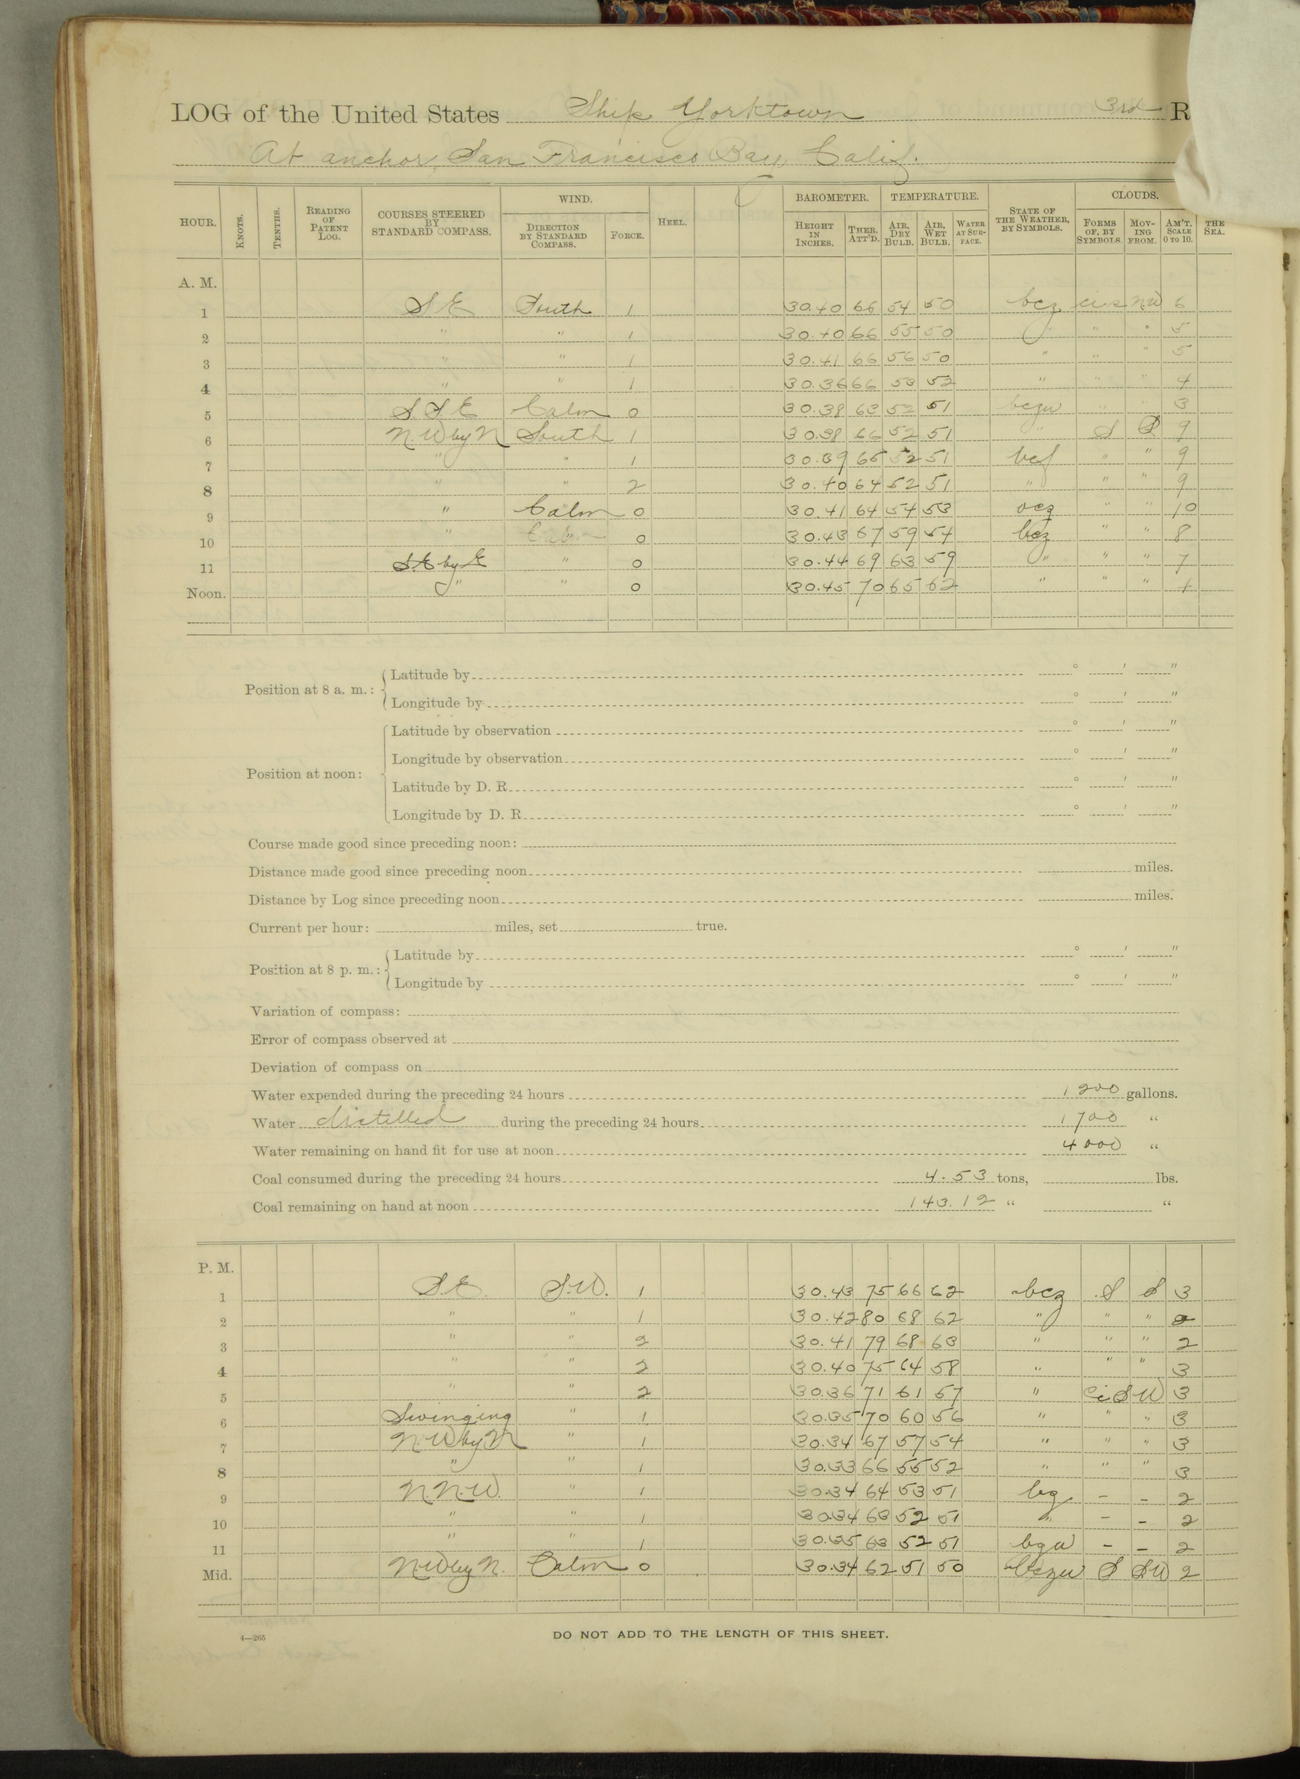 LOG of the United States Ship Yorktown 3rd R
At anchor, San Francisco Bay, Calif.
HOUR. KNOTS. TENTHS. READING OF PATENT LOG. COURSES STEERED BY STANDARD COMPASS. WIND. DIRECTION BY STANDARD COMPASS. FORCE. HEEL. BAROMETER. HEIGHT IN INCHES. THER. ATT'D. TEMPERATURE. AIR, DRY BULB. AIR, WET BULB. WATER AT SURFACE. STATE OF THE WEATHER, BY SYMBOLS. CLOUDS. FORMS OF, BY SYMBOLS. MOVING FROM. AM'T, SCALE 0 TO 10. THE SEA.
A. M.
1 SE South 1 30.40 66 54 50 bcz ci-s NW 6
2 " " 1 30.40 66 55 50 " " " 5
3 " " 1 30.41 66 56 50 " " " 5
4 " " 1 30.36 66 53 52 " " " 4
5 SSE Calm 0 30.38 63 52 51 bczw 3
6 N.W by N South 1 30.38 66 52 51 " S S 9
7 " " 1 30.39 65 52 51 bcf " " 9
8 " " 2 30.40 64 52 51 " " " 9
9 " Calm 0 30.41 64 54 53 ocz " " 10
10 " Calm 0 30.43 67 59 54 bcz " " 8
11 SE by E " 0 30.44 69 63 59 " " " 7
Noon. " " 0 30.45 70 65 62 " " " 4
Position at 8 a. m.: Latitude by ° ′ ″
Longitude by ° ′ ″
Position at noon: Latitude by observation ° ′ ″
Longitude by observation ° ′ ″
Latitude by D. R. ° ′ ″
Longitude by D. R. ° ′ ″
Course made good since preceding noon:
Distance made good since preceding noon miles.
Distance by Log since preceding noon miles.
Current per hour: miles, set true.
Position at 8 p. m.: Latitude by ° ′ ″
Longitude by ° ′ ″
Variation of compass:
Error of compass observed at
Deviation of compass on
Water expended during the preceding 24 hours 1200 gallons.
Water distilled during the preceding 24 hours 1700 "
Water remaining on hand fit for use at noon 4000 "
Coal consumed during the preceding 24 hours 4.53 tons, lbs.
Coal remaining on hand at noon 143.12 " "
P. M.
1 SE. S.W. 1 30.43 75 66 62 bcz S S 3
2 " " 1 30.42 80 68 62 " " " 2
3 " " 2 30.41 79 68 63 " " " 2
4 " " 2 30.40 75 64 58 " " " 3
5 " " 2 30.36 71 61 57 " Ci S W 3
6 Swinging " 1 30.35 70 60 56 " " " 3
7 N.W by N " 1 30.34 67 57 54 " " " 3
8 " " 1 30.33 66 55 52 " " " 3
9 N.N.W. " 1 30.34 64 53 51 bz - - 2
10 " " 1 30.34 63 52 51 " - - 2
11 " " 1 30.35 63 52 51 bzw - - 2
Mid. N.W by N. Calm 0 30.34 62 51 50 bczw S SW 2
4—265
DO NOT ADD TO THE LENGTH OF THIS SHEET.